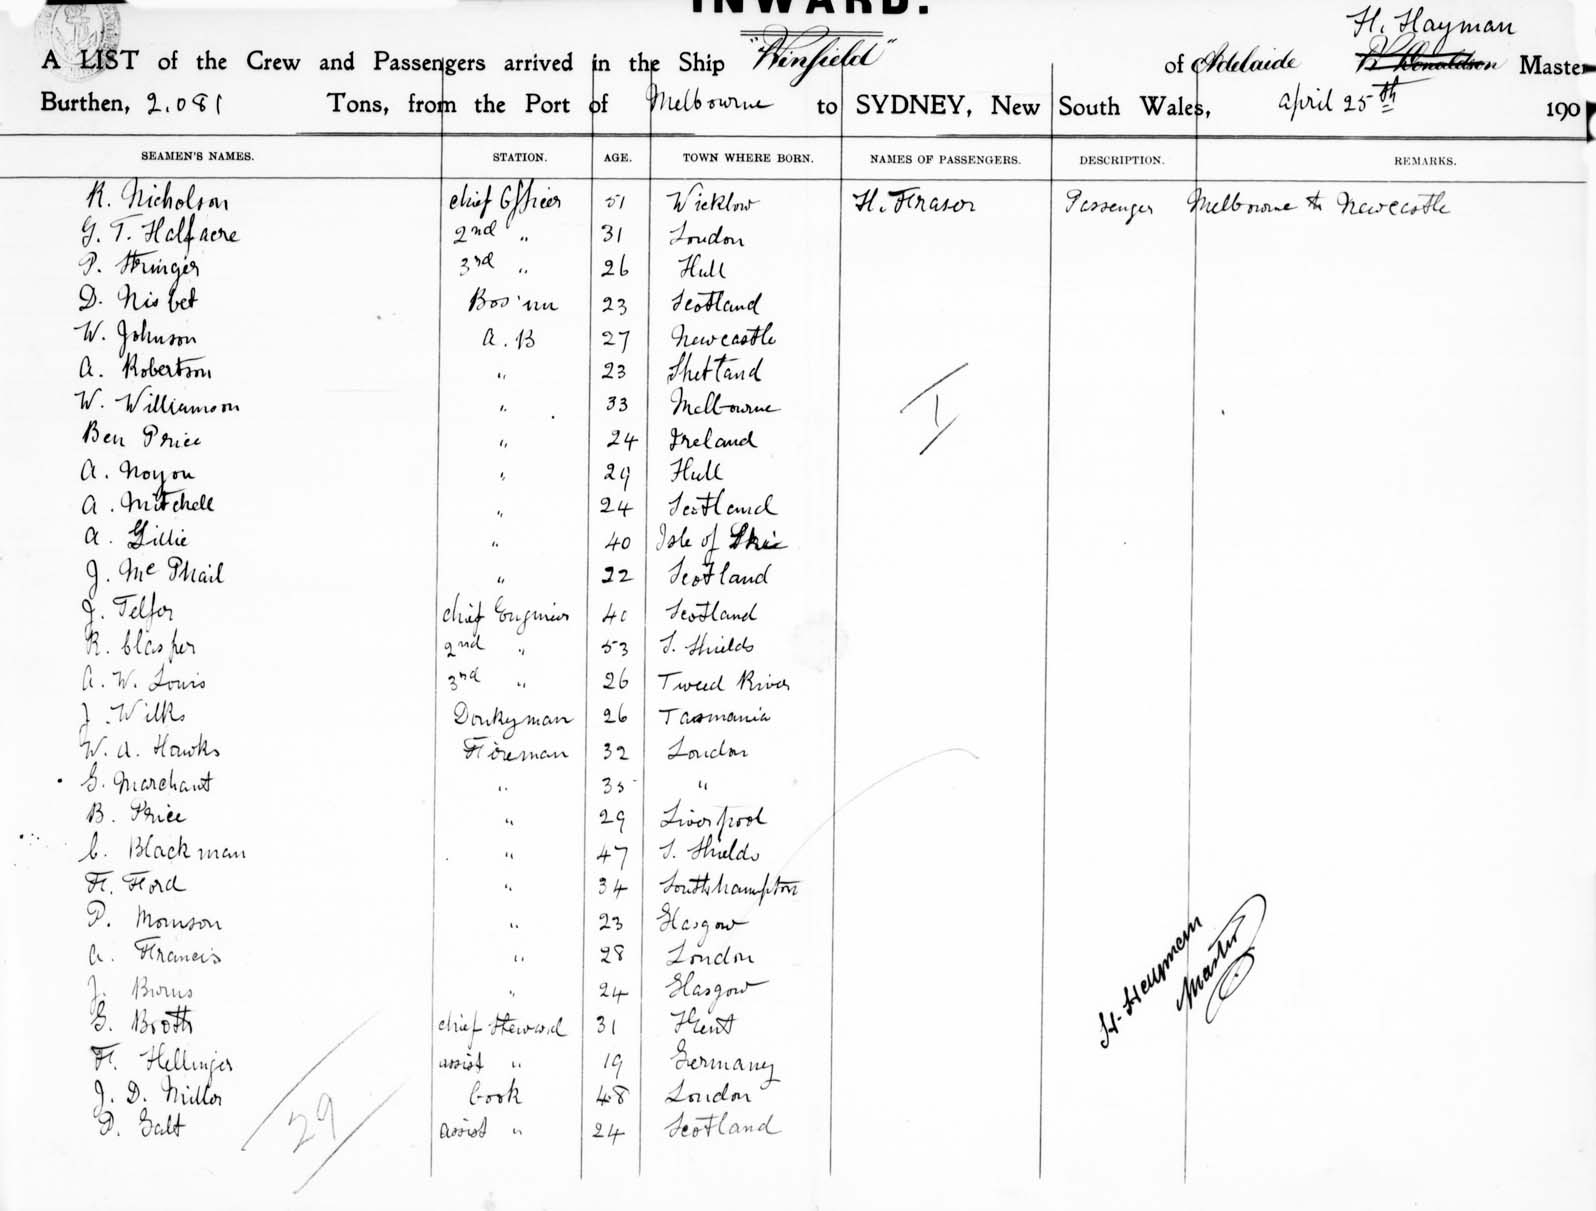 INWARD.
H. Hayman
A LIST of the Crew and Passengers arrived in the Ship "Winfield" of Adelaide Donaldson Master
Burthen, 2.081 Tons, from the Port of Melbourne to SYDNEY, New South Wales, April 25th 190
SEAMEN'S NAMES. STATION. AGE. TOWN WHERE BORN. NAMES OF PASSENGERS. DESCRIPTION. REMARKS.
R. Nicholson chief Officer 51 Wicklow H. Fraser Passenger Melbourne to Newcastle
G. T. Halfacre 2nd " 31 London
P. Stringer 3rd " 26 Hull
D. Nisbet Bos'un 23 Scotland
W. Johnson A.B 27 Newcastle
A. Robertson " 23 Shetland
W. Williamson " 33 Melbourne
Ben Price " 24 Ireland
A. Noyon " 29 Hull
A. Mitchell " 24 Scotland
A. Gillie " 40 Isle of Skie
J. Mc Phail " 22 Scotland
J. Telfer chief Engineer 40 Scotland
R. Clasper 2nd " 53 S. Shields
A. W. Louis 3rd " 26 Tweed River
J. Wilks Donkyman 26 Tasmania
W. A. Hawks Fireman 32 London
G. Marchant " 35 "
B. Price " 29 Liverpool
C. Blackman " 47 S. Shields
F. Ford " 34 Southhampton
P. Morrison " 23 Glasgow
A. Francis " 28 London
J. Burns " 24 Glasgow
G. Brooth chief Steward 31 Kent
F. Hellinger assist " 19 Germany
J. D. Miller Cook 48 London
D. Galt assist " 24 Scotland
1
29
H. Hayman
Master